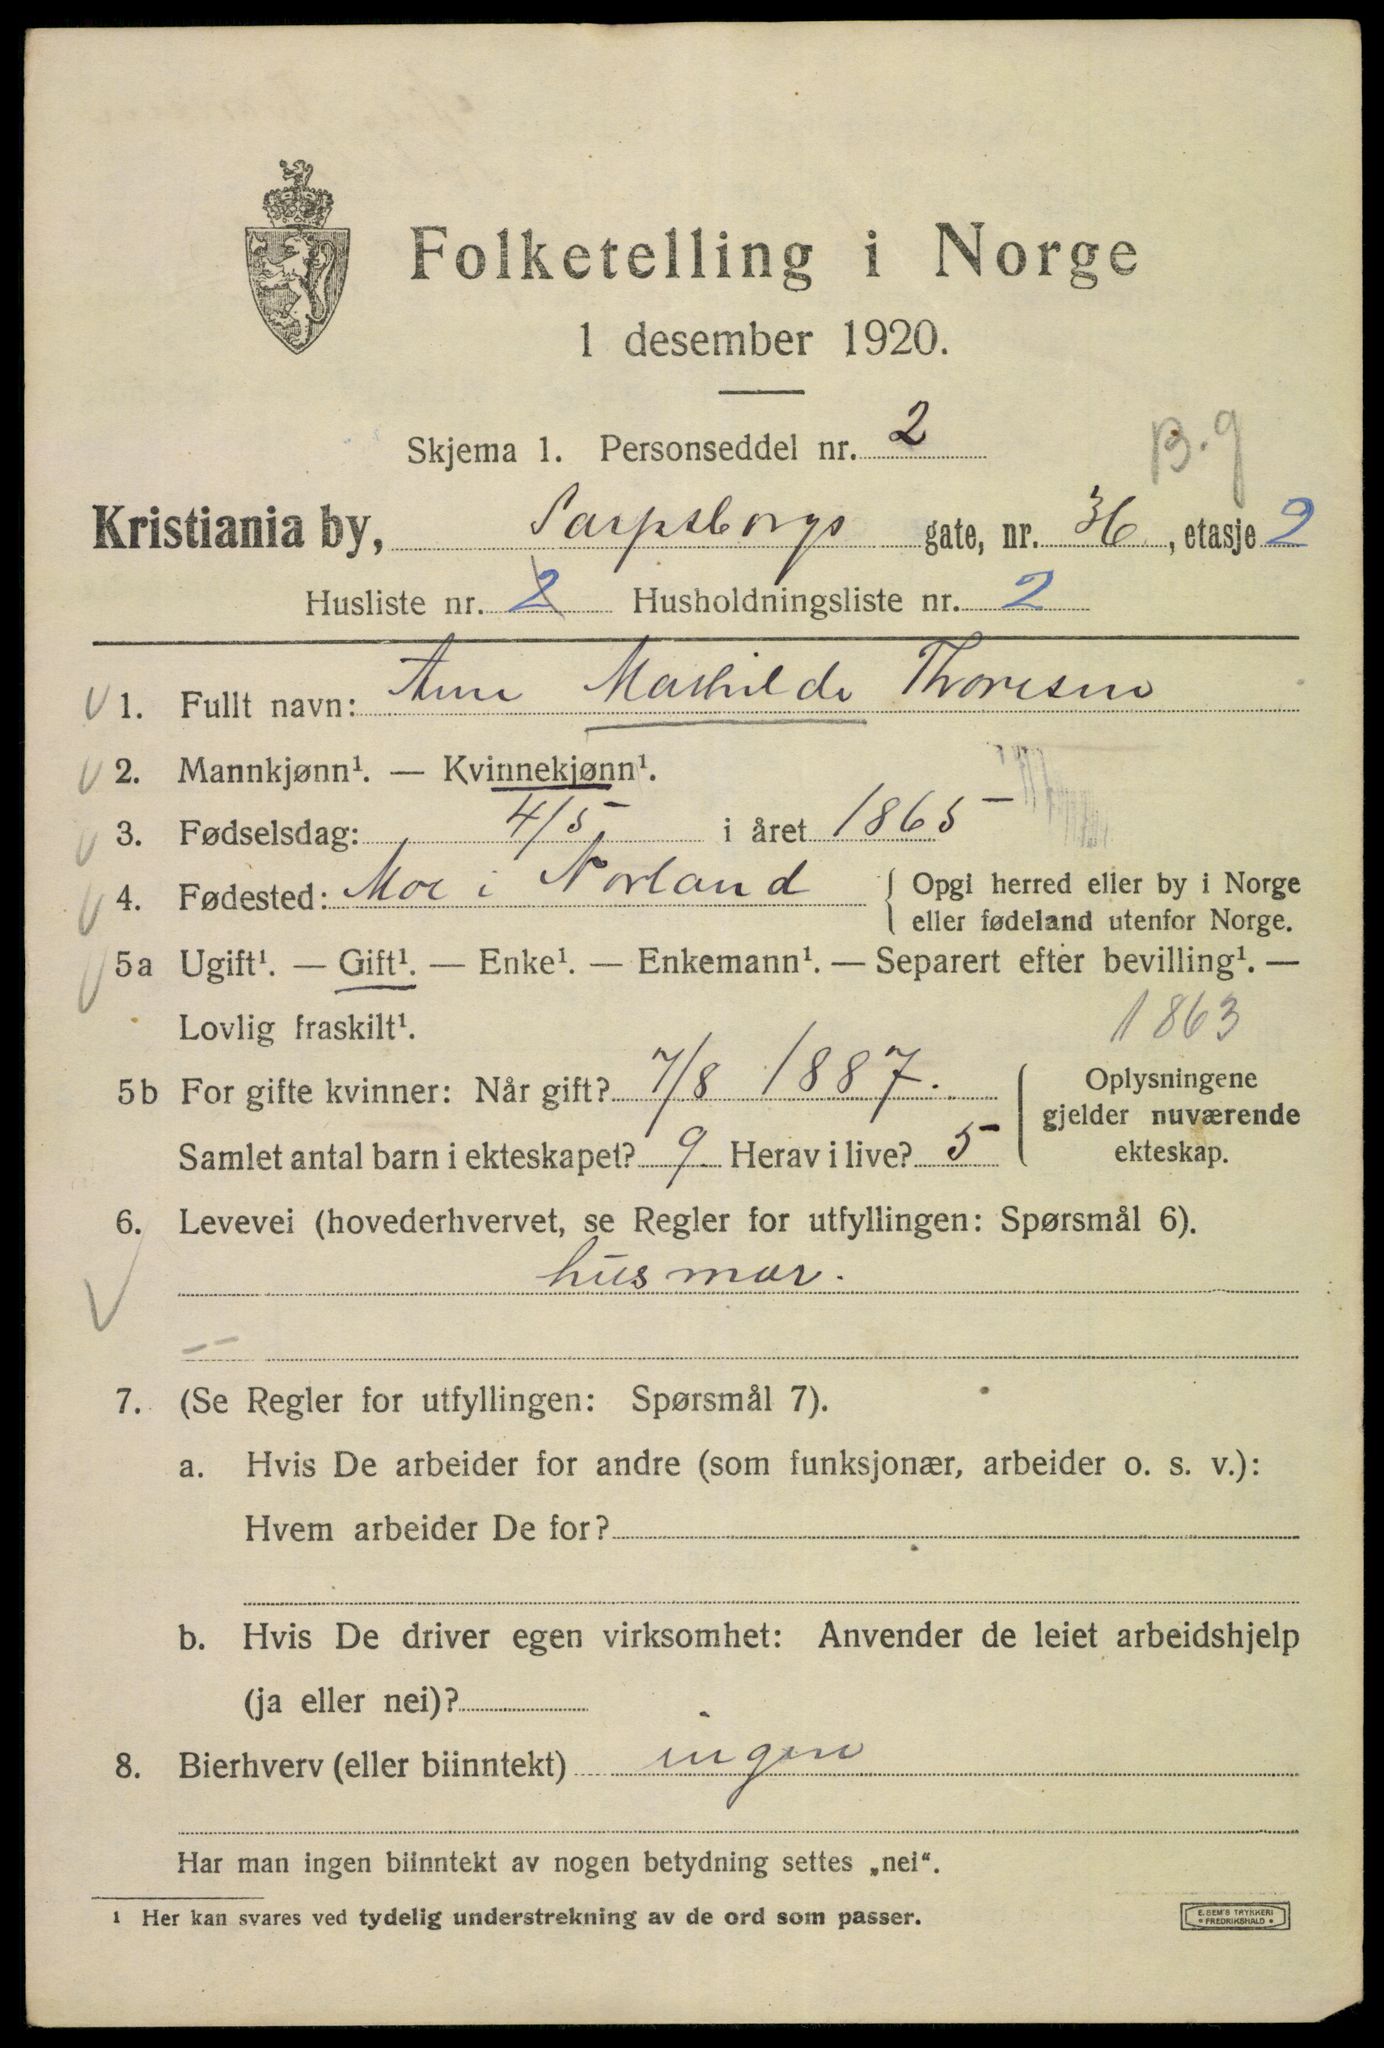 Folketelling i Norge
1 desember 1920.
Skjema 1. Personseddel nr. 2
B. 9
Kristiania by, Sarpsborgs gate, nr. 36, etasje 2
Husliste nr. 2 Husholdningsliste nr. 2
1. Fullt navn: Anne Mathilde Thoresen
2. Mannkjønn¹. — Kvinnekjønn¹.
3. Fødselsdag: 4/5 i året 1865
4. Fødested: Moe i Norland { Opgi herred eller by i Norge
eller fødeland utenfor Norge.
5a Ugift¹. — Gift¹. — Enke¹. — Enkemann¹. — Separert efter bevilling¹. —
Lovlig fraskilt¹.
1863
5b For gifte kvinner: Når gift? 7/8 1887.
Samlet antal barn i ekteskapet? 9 Herav i live? 5
Oplysningene
gjelder nuværende
ekteskap.
6. Levevei (hovederhvervet, se Regler for utfyllingen: Spørsmål 6).
husmor.
7. (Se Regler for utfyllingen: Spørsmål 7).
a. Hvis De arbeider for andre (som funksjonær, arbeider o. s. v.):
Hvem arbeider De for?
b. Hvis De driver egen virksomhet: Anvender de leiet arbeidshjelp
(ja eller nei)?
8. Bierhverv (eller biinntekt) ingen
Har man ingen biinntekt av nogen betydning settes „nei“.
¹ Her kan svares ved tydelig understrekning av de ord som passer.
E. SEM'S TRYKKERI
• FREDRIKSHALD •